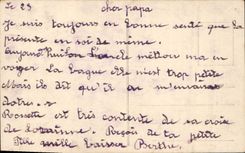 Le 23 cher papa
Je suis toujours en bonne santé que la
présente en soi de même.
Aujourd'hui ton Lionele meilleu ma en
voyer la bague elle m'est trop petite
Mais ils dit qu'il en
notre.
Rosette est très contente de sa croix
de Lorainne. Reçois de ta petite
fille mille baiser Berthe.